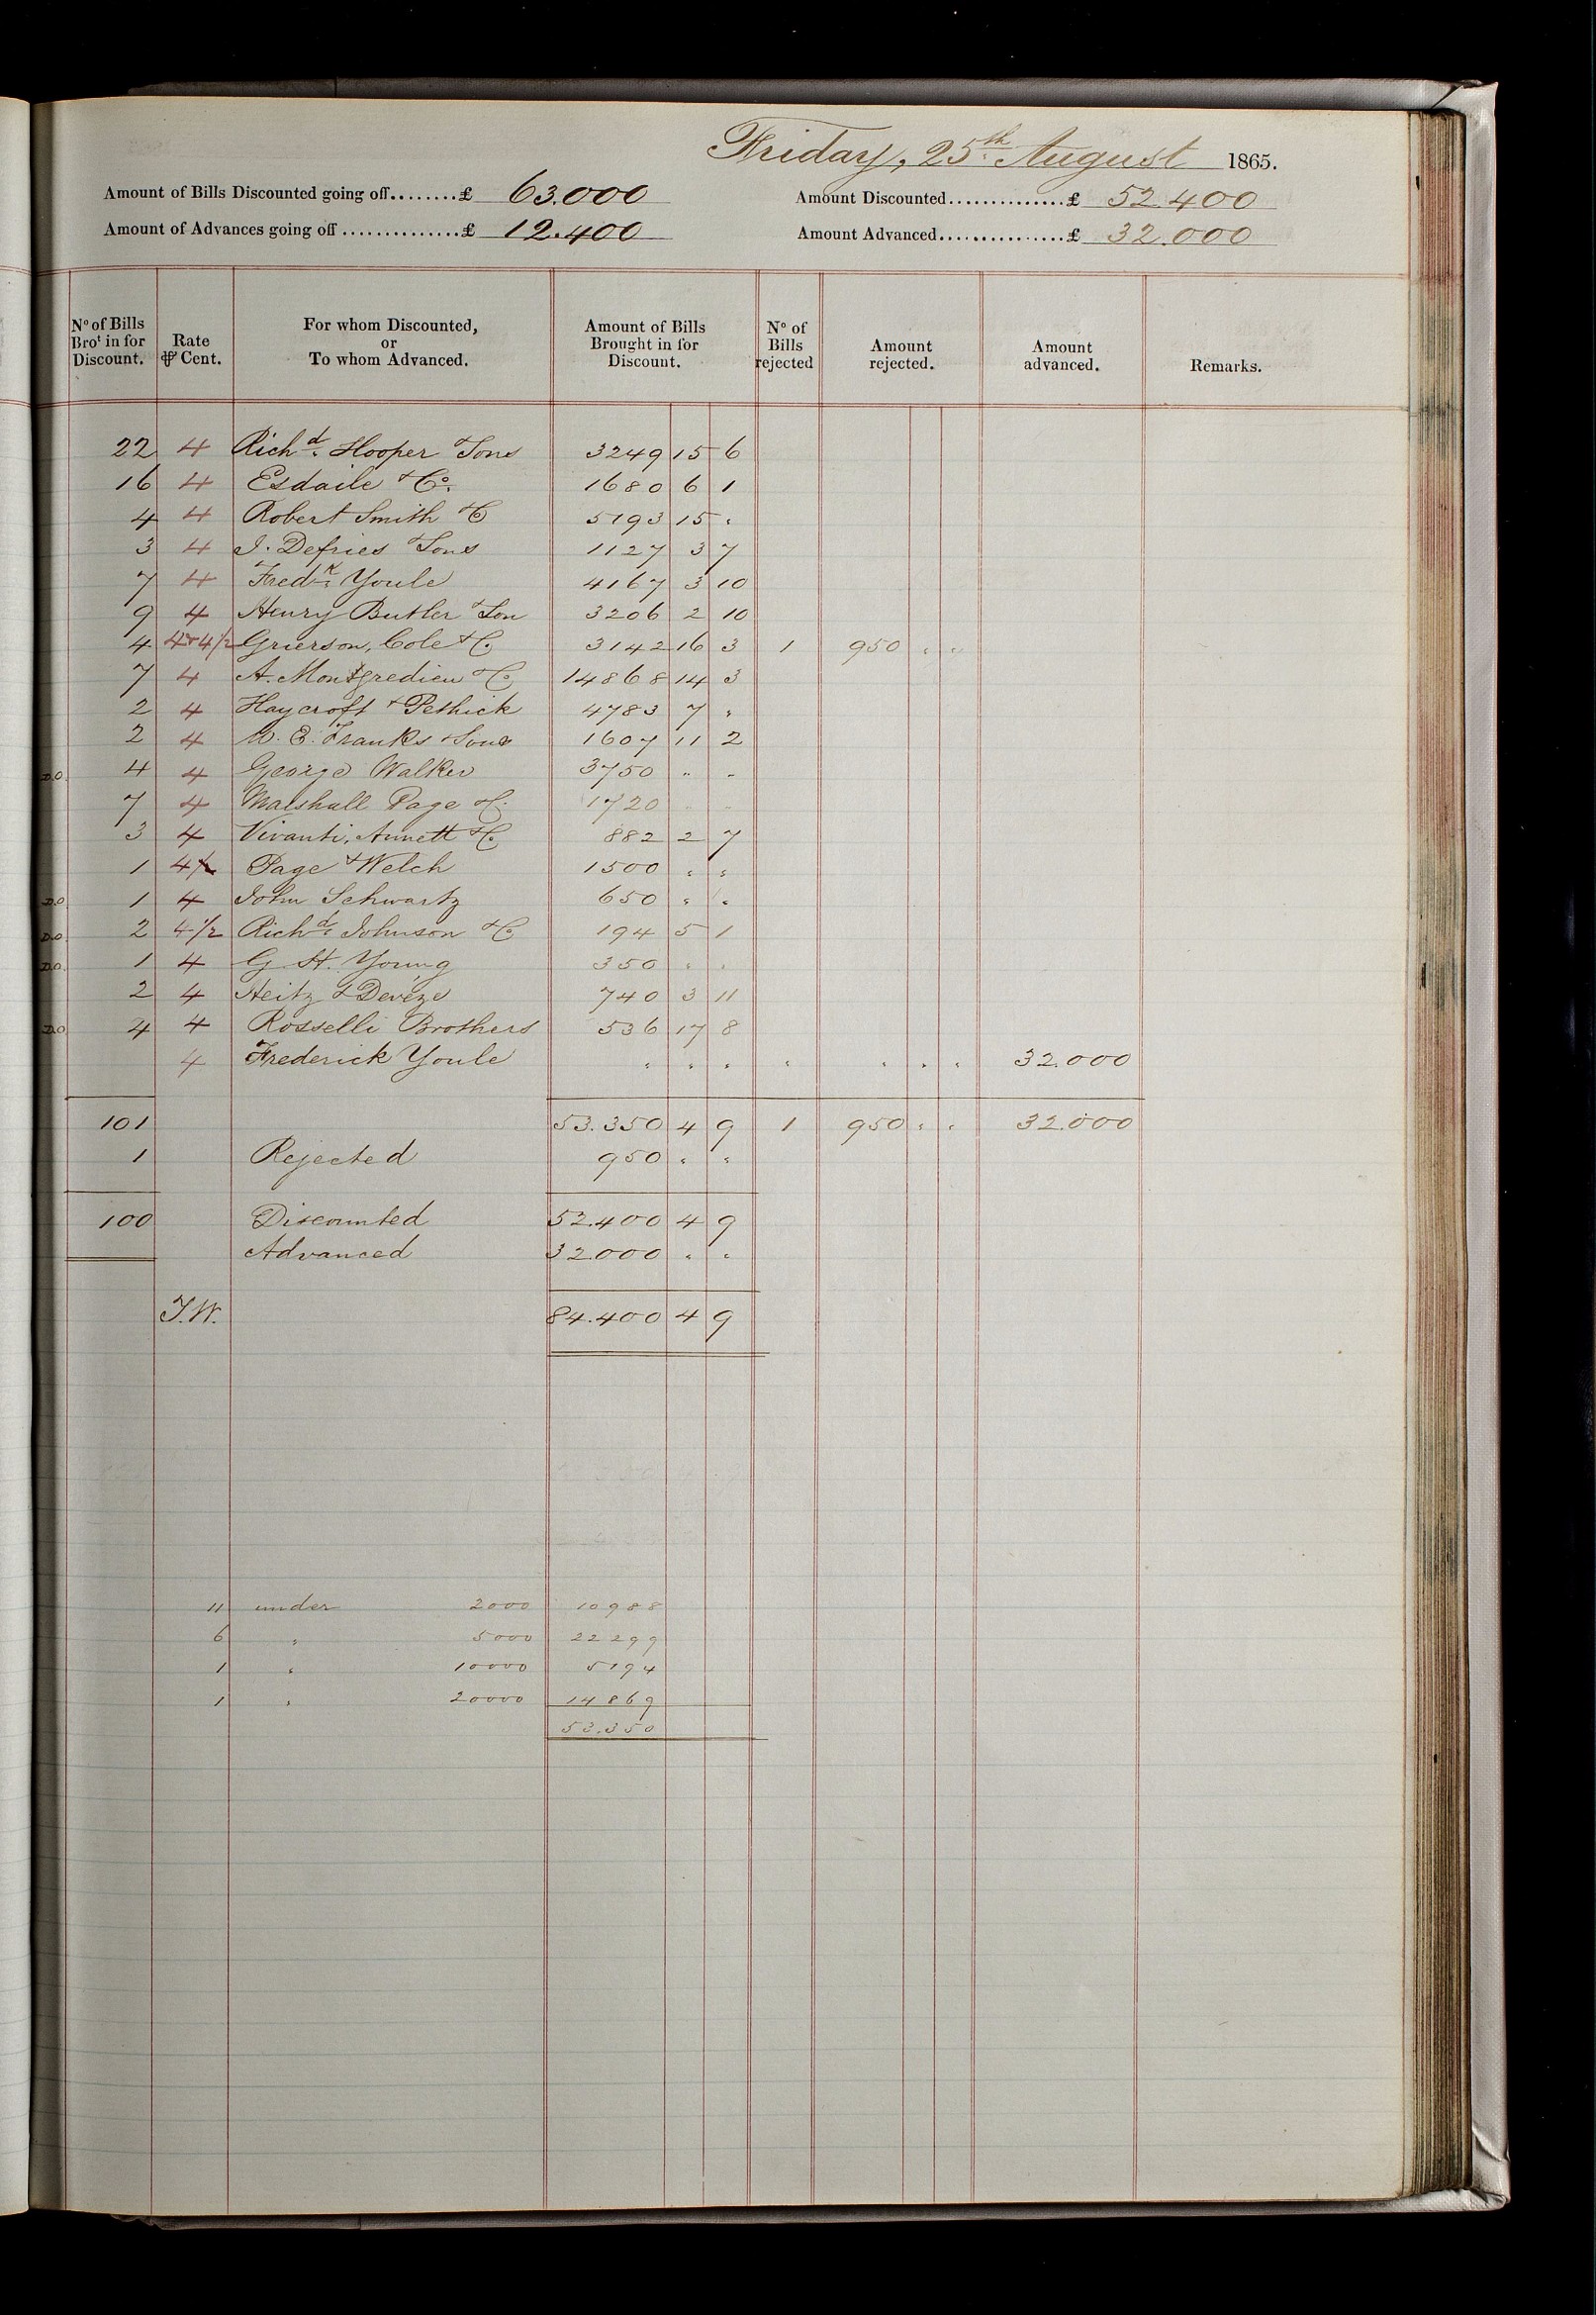 Friday, 25th August 1865.
Amount of Bills Discounted going off........£ 63.000 Amount Discounted..............£ 52.400
Amount of Advances going off..............£ 12.400 Amount Advanced...............£ 32.000
No of Bills Brot in for Discount. Rate ⅌ Cent. For whom Discounted, or To whom Advanced. Amount of Bills Brought in for Discount. No of Bills rejected Amount rejected. Amount advanced. Remarks.
22 4 Richd. Hooper & Sons 3249 15 6
16 4 Esdaile & Co. 1680 6 1
4 4 Robert Smith & C 5193 15 "
3 4 J. Defries & Sons 1127 3 7
7 4 Fredk. Youle 4167 3 10
9 4 Henry Butler & Son 3206 2 10
4 4 & 4 1/2 Grierson, Cole & C. 3142 16 3 1 950 " "
7 4 A. Montgredieu & C. 14868 14 3
2 4 Haycroft & Pethick 4783 7 "
2 4 M. E. Franks & Sons 1607 11 2
D.O. 4 4 George Walker 3750 " "
7 4 Marshall Page & C. 1720 " "
3 4 Vivanti, Annett & C. 882 2 7
1 4 1/2 Page & Welch 1500 " "
D.O 1 4 John Schwartz 650 " "
D.O 2 4 1/2 Richd. Johnson & C. 194 5 1
D.O. 1 4 G. H. Young 350 " "
2 4 Heitz & Devèze 740 3 11
D.O 4 4 Rosselli Brothers 536 17 8
4 Frederick Youle " " " " " " " 32.000
101 53.350 4 9 1 950 " " 32.000
1 Rejected 950 " "
100 Discounted 52.400 4 9
Advanced 32.000 " "
J.W. 84.400 4 9
11 under 2000 10988
6 " 5000 22299
1 " 10000 5194
1 " 20000 14869
53.350